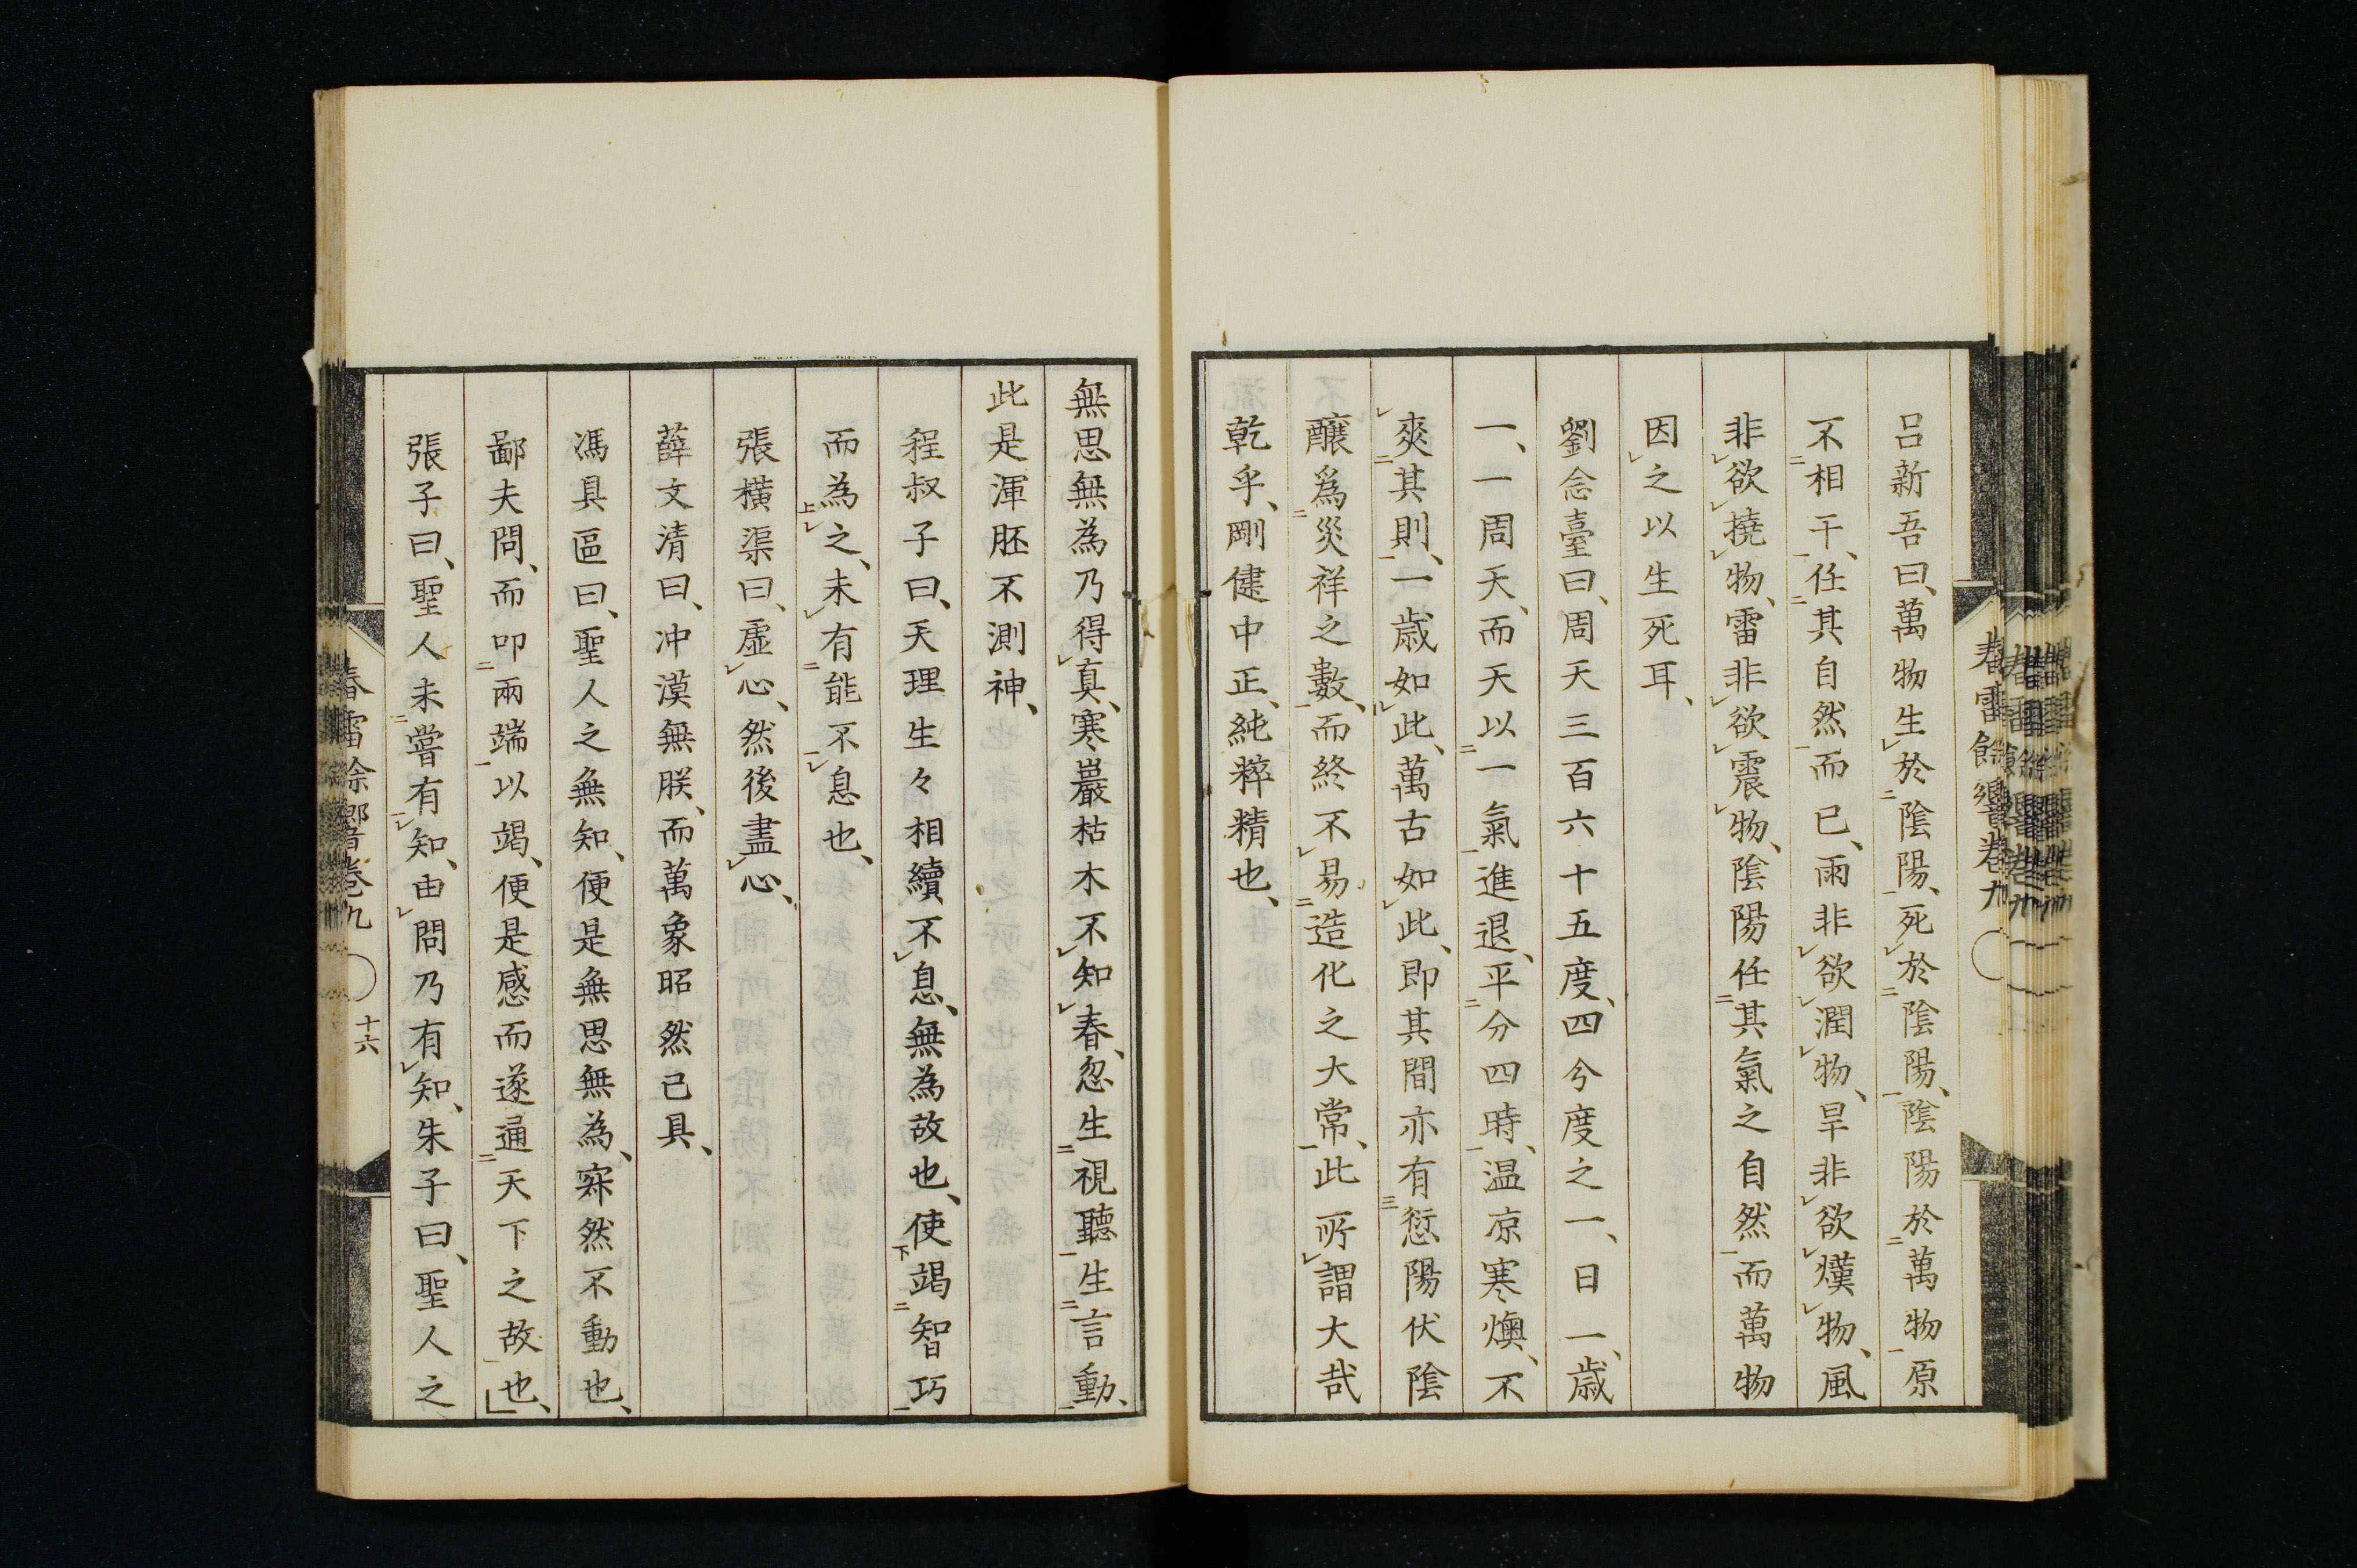 呂新吾曰、萬物生於陰陽、死於陰陽、陰陽於萬物原
不相干、任其自然而已、雨非欲潤物、旱非欲熯物、風
非欲撓物、雷非欲震物、陰陽任其氣之自然而萬物
因之以生死耳、
劉念臺曰、周天三百六十五度、四今度之一、日一歲
一、一周天、而天以一氣進退、平分四時、温凉寒燠、不
爽其則、一歲如此、萬古如此、即其間亦有愆陽伏陰
釀爲災祥之數、而終不易造化之大常、此所謂大哉
乾乎、剛健中正、純粹精也、
春雷餘響卷九
無思無為乃得真、寒巖枯木不知春、忽生視聽生言動、
此是渾胚不測神、
程叔子曰、天理生々相續不息、無為故也、使竭智巧
而為之、未有能不息也、
張橫渠曰、虛心、然後盡心、
薛文清曰、冲漠無朕、而萬象昭然已具、
馮具區曰、聖人之無知、便是無思無為、寂然不動也、
鄙夫問、而叩兩端以竭、便是感而遂通天下之故也、
張子曰、聖人未嘗有知、由問乃有知、朱子曰、聖人之
春雷餘響卷九
十六